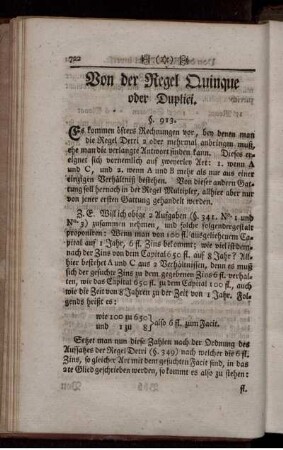 722
Von der Regel Quinque
oder Duplici.
§. 913.
Es kommen öfters Rechnungen vor, bey denen man
die Regel Detri 2 oder mehrmal anbringen muß,
ehe man die verlangte Antwort finden kann. Dieses er-
eignet sich vornemlich auf zweyerley Art: 1. wenn A
und C, und 2. wenn A und B mehr als nur aus einer
einzigen Verhältniß bestehen. Von dieser andern Gat-
tung soll hernach in der Regel Multiplex, allhier aber nur
von jener ersten Gattung gehandelt werden.
Z. E. Will ich obige 2 Aufgaben (§. 341. No. 1 und
No. 3) zusammen nehmen, und solche folgendergestalt
proponiren: Wenn man von 100 fl. ausgeliehenem Ca-
pital auf 1 Jahr, 6 fl. Zins bekommt; wie viel ist dem-
nach der Zins von dem Capital 650 fl. auf 8 Jahr? All-
hier bestehet A und C aus 2 Verhältnissen, denn es muß
sich der gesuchte Zins zu dem gegebenen Zins 6 fl. verhal-
ten, wie das Capital 650 fl. zu dem Capital 100 fl., auch
wie die Zeit von 8 Jahren zu der Zeit von 1 Jahr. Folg-
ends heißt es:
wie 100 zu 650
und 1 zu 8 } also 6 fl. zum Facit.
Setzet man nun diese Zahlen nach der Ordnung des
Aufsatzes der Regel Detri (§. 349) nach welcher die 6 fl.
Zins, so gleicher Art mit dem gesuchten Facit sind, in das
2te Glied geschrieben werden, so kommt es also zu stehen:
fl.